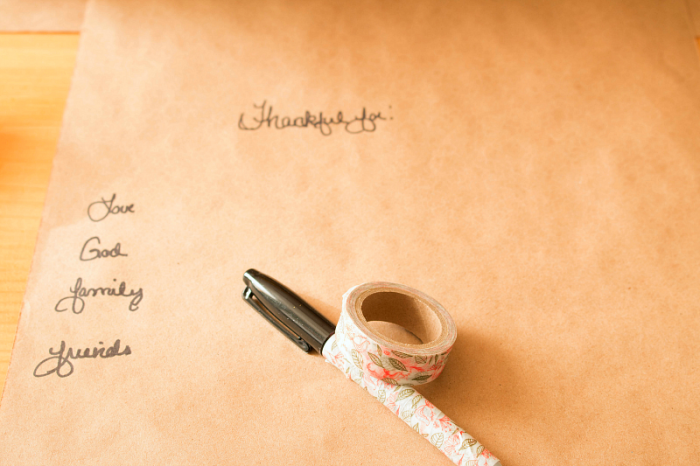 Thankful for:
Love
God
family
friends